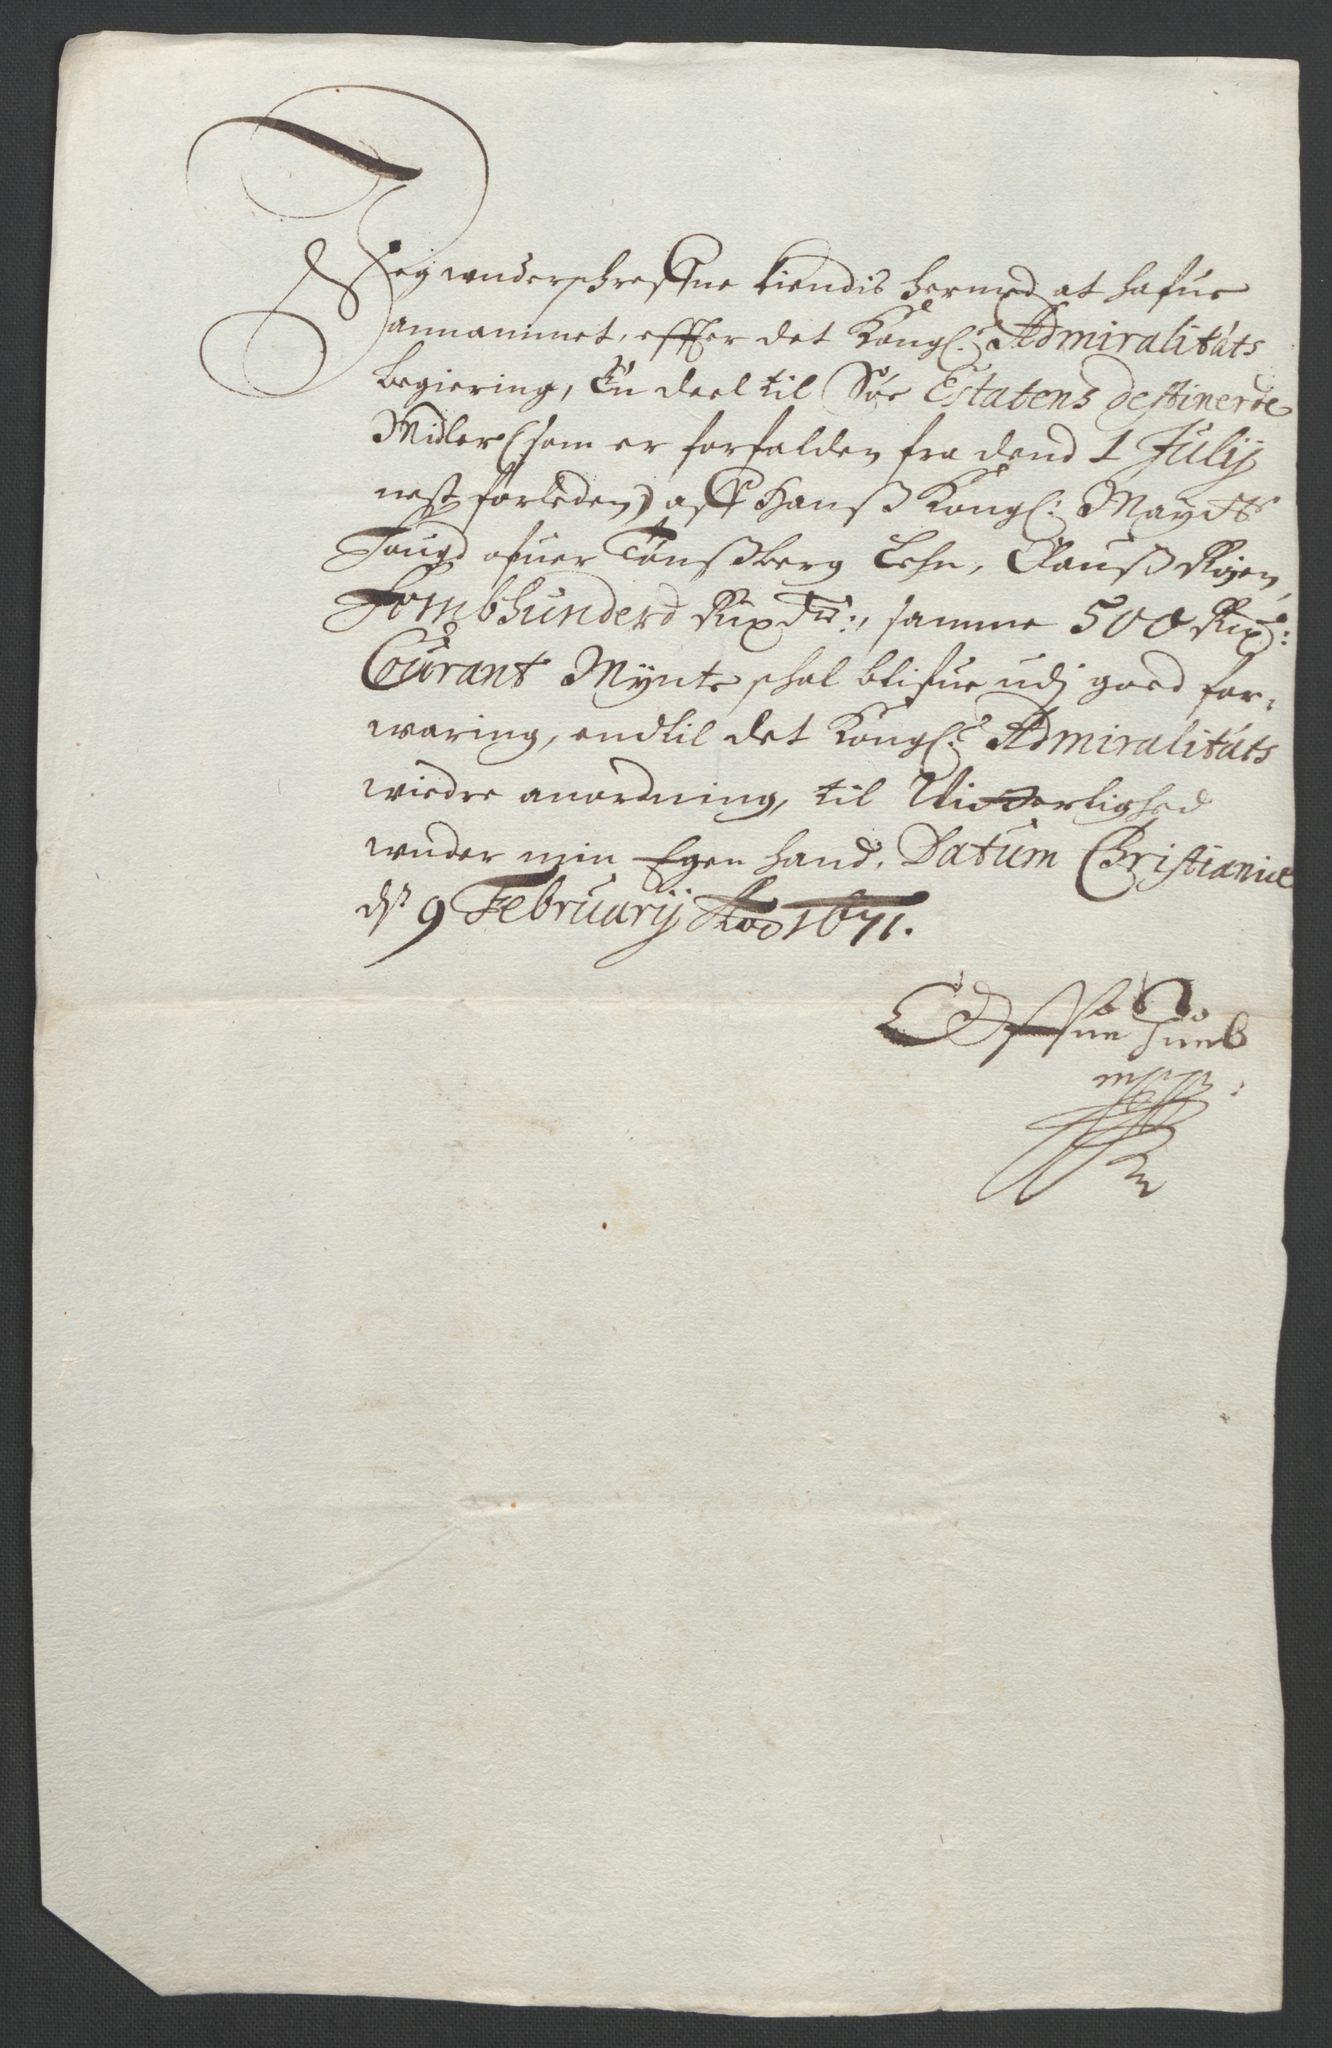 Jeg wnderschreffne kiendis hermed at hafue
annammet, effter det Kongl: Admiralitäts
begiering, En deel til Søe Estatens destinerde
Midler (som er forfalden fra dend 1 Julij
nest forleden) aff Hanß Kongl: Maytts
Fougd ofuer Tønßberg Lehn, Clauß Røyem,
Fembhunderd Rix Dr:, samme 500 Rixd:
Courant Mynte schal blifue udj goed for-
waring, endtil det Kongl: Admiralitäts
wiedre anordning, til Witterlighed
wnder min Egen hand. Datum Christianiæ
ds 9 Februarij Ao 1671.